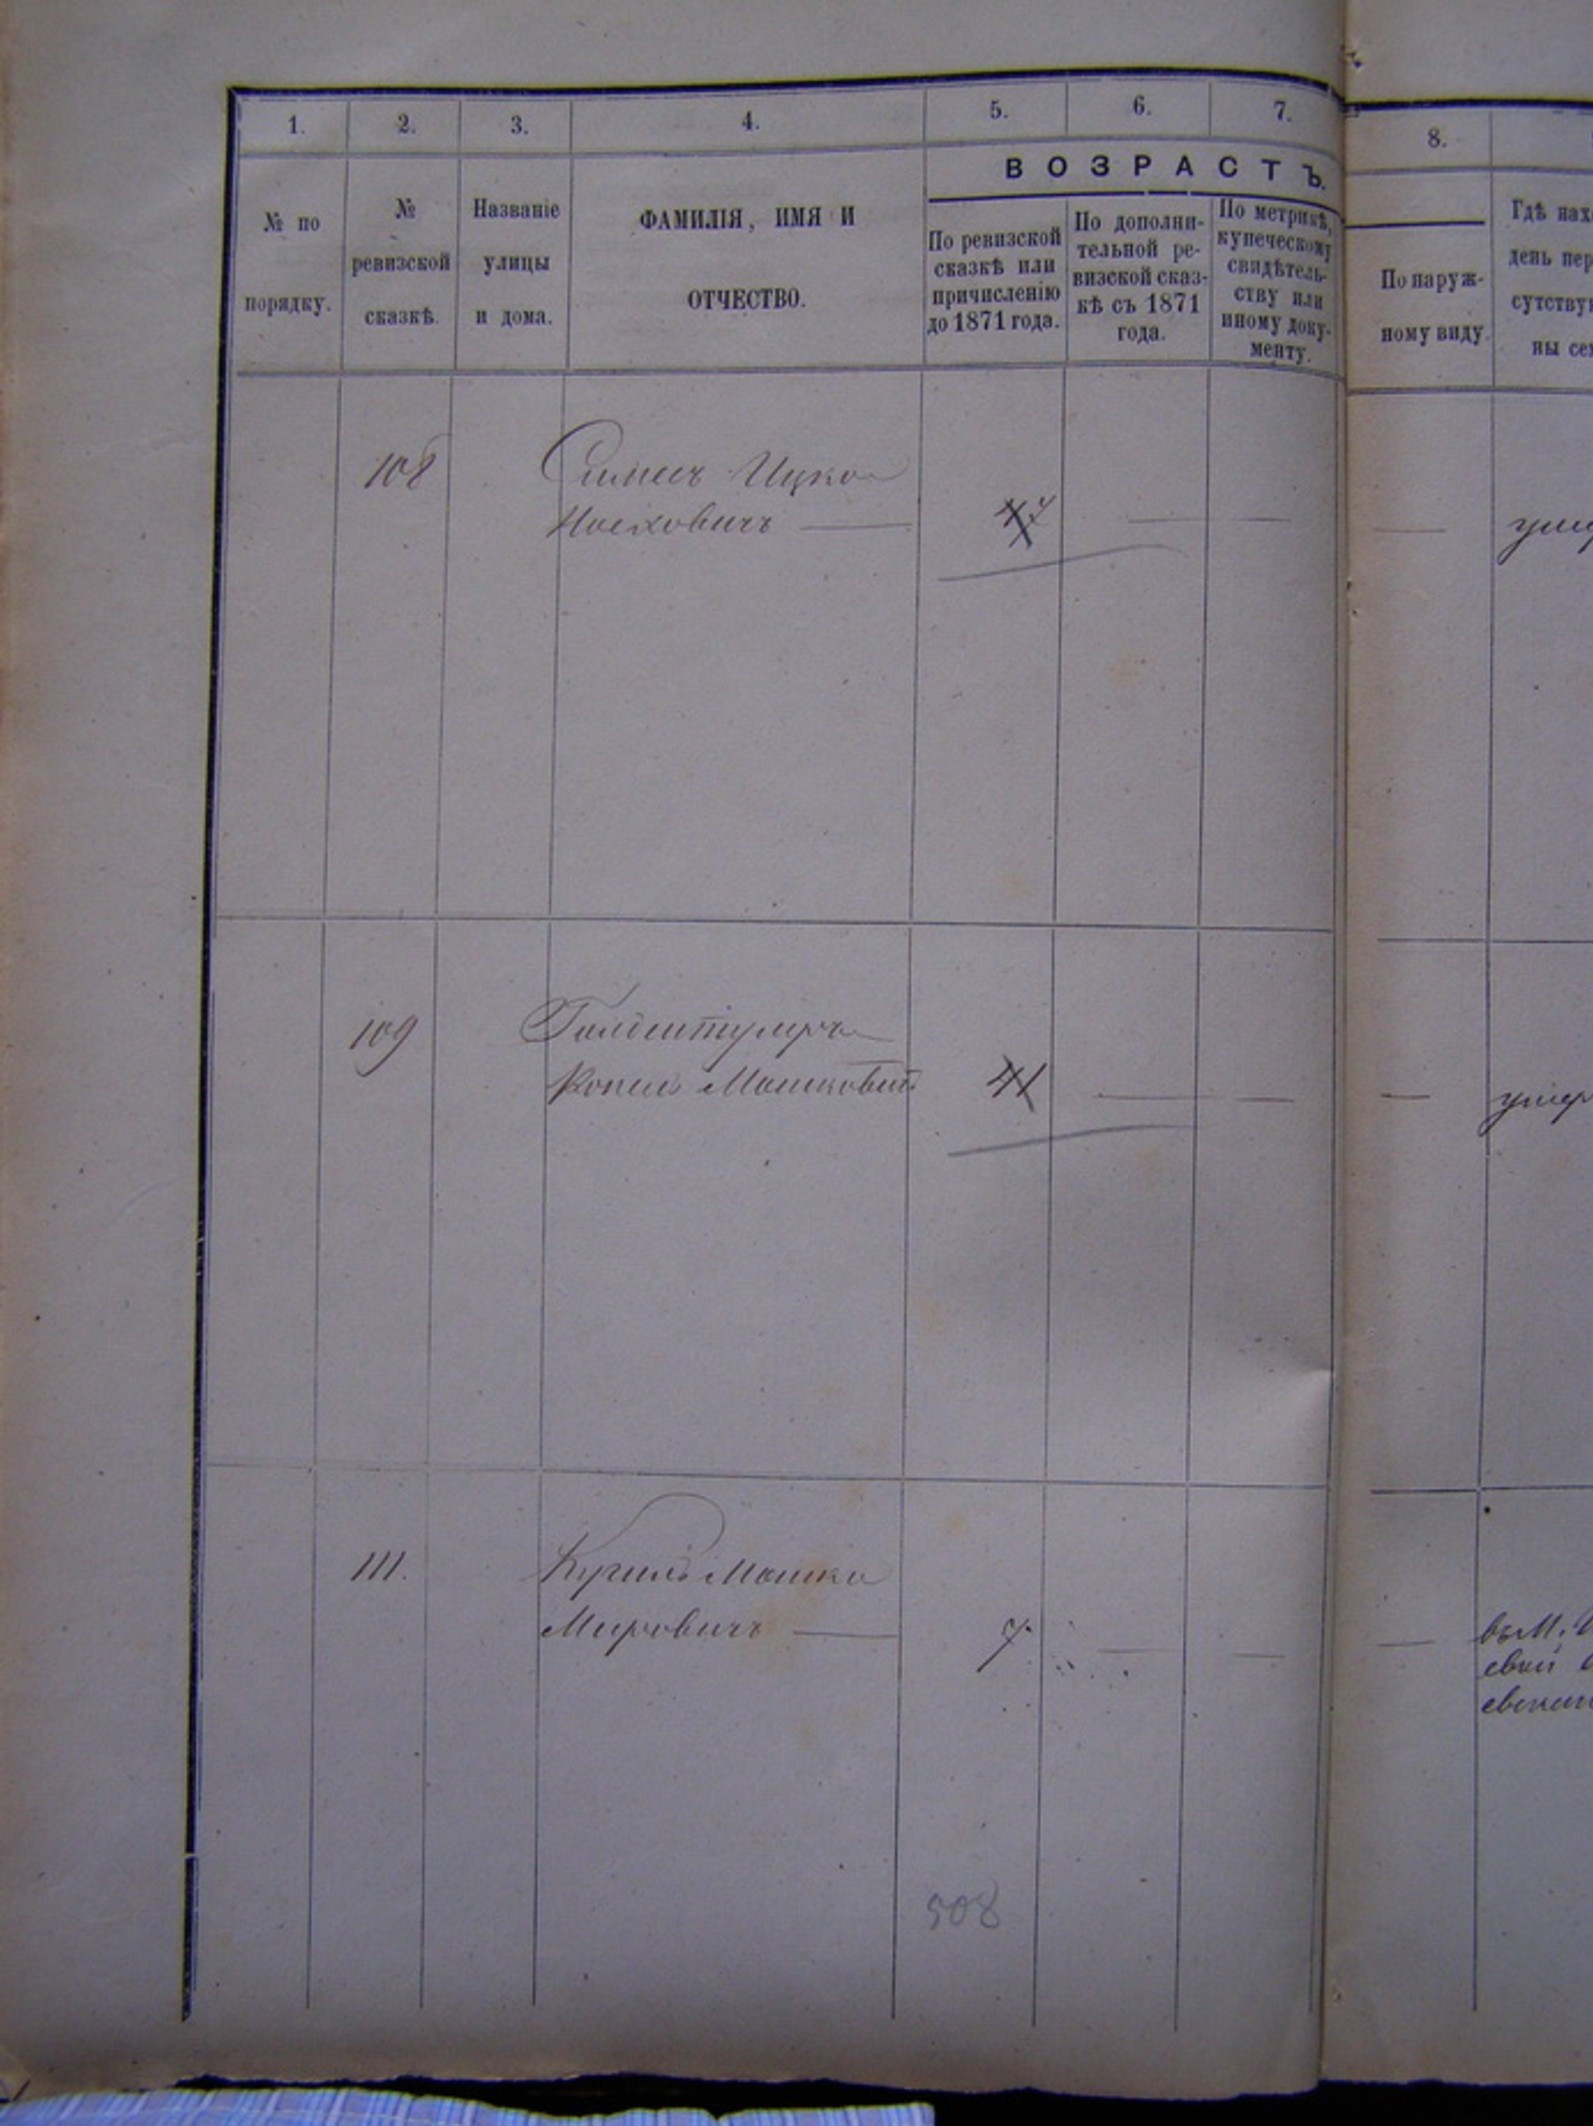 1. 2. 3. 4. 5. 6. 7. 8.
ВОЗРАСТЪ.
№ по порядку.
№ ревизской сказкѣ.
Названіе улицы и дома.
ФАМИЛІЯ, ИМЯ И ОТЧЕСТВО.
По ревизской сказкѣ или причисленію до 1871 года.
По дополнительной ревизской сказкѣ съ 1871 года.
По метрикѣ, купеческому свидѣтельству или иному документу.
По наружному виду.
Гдѣ нах
день пер
сутствую
ны сем
108 Ицко
Иосховичъ
109
Копель Мошковичъ 41
умер
111. Мошка
Мирович 7
508